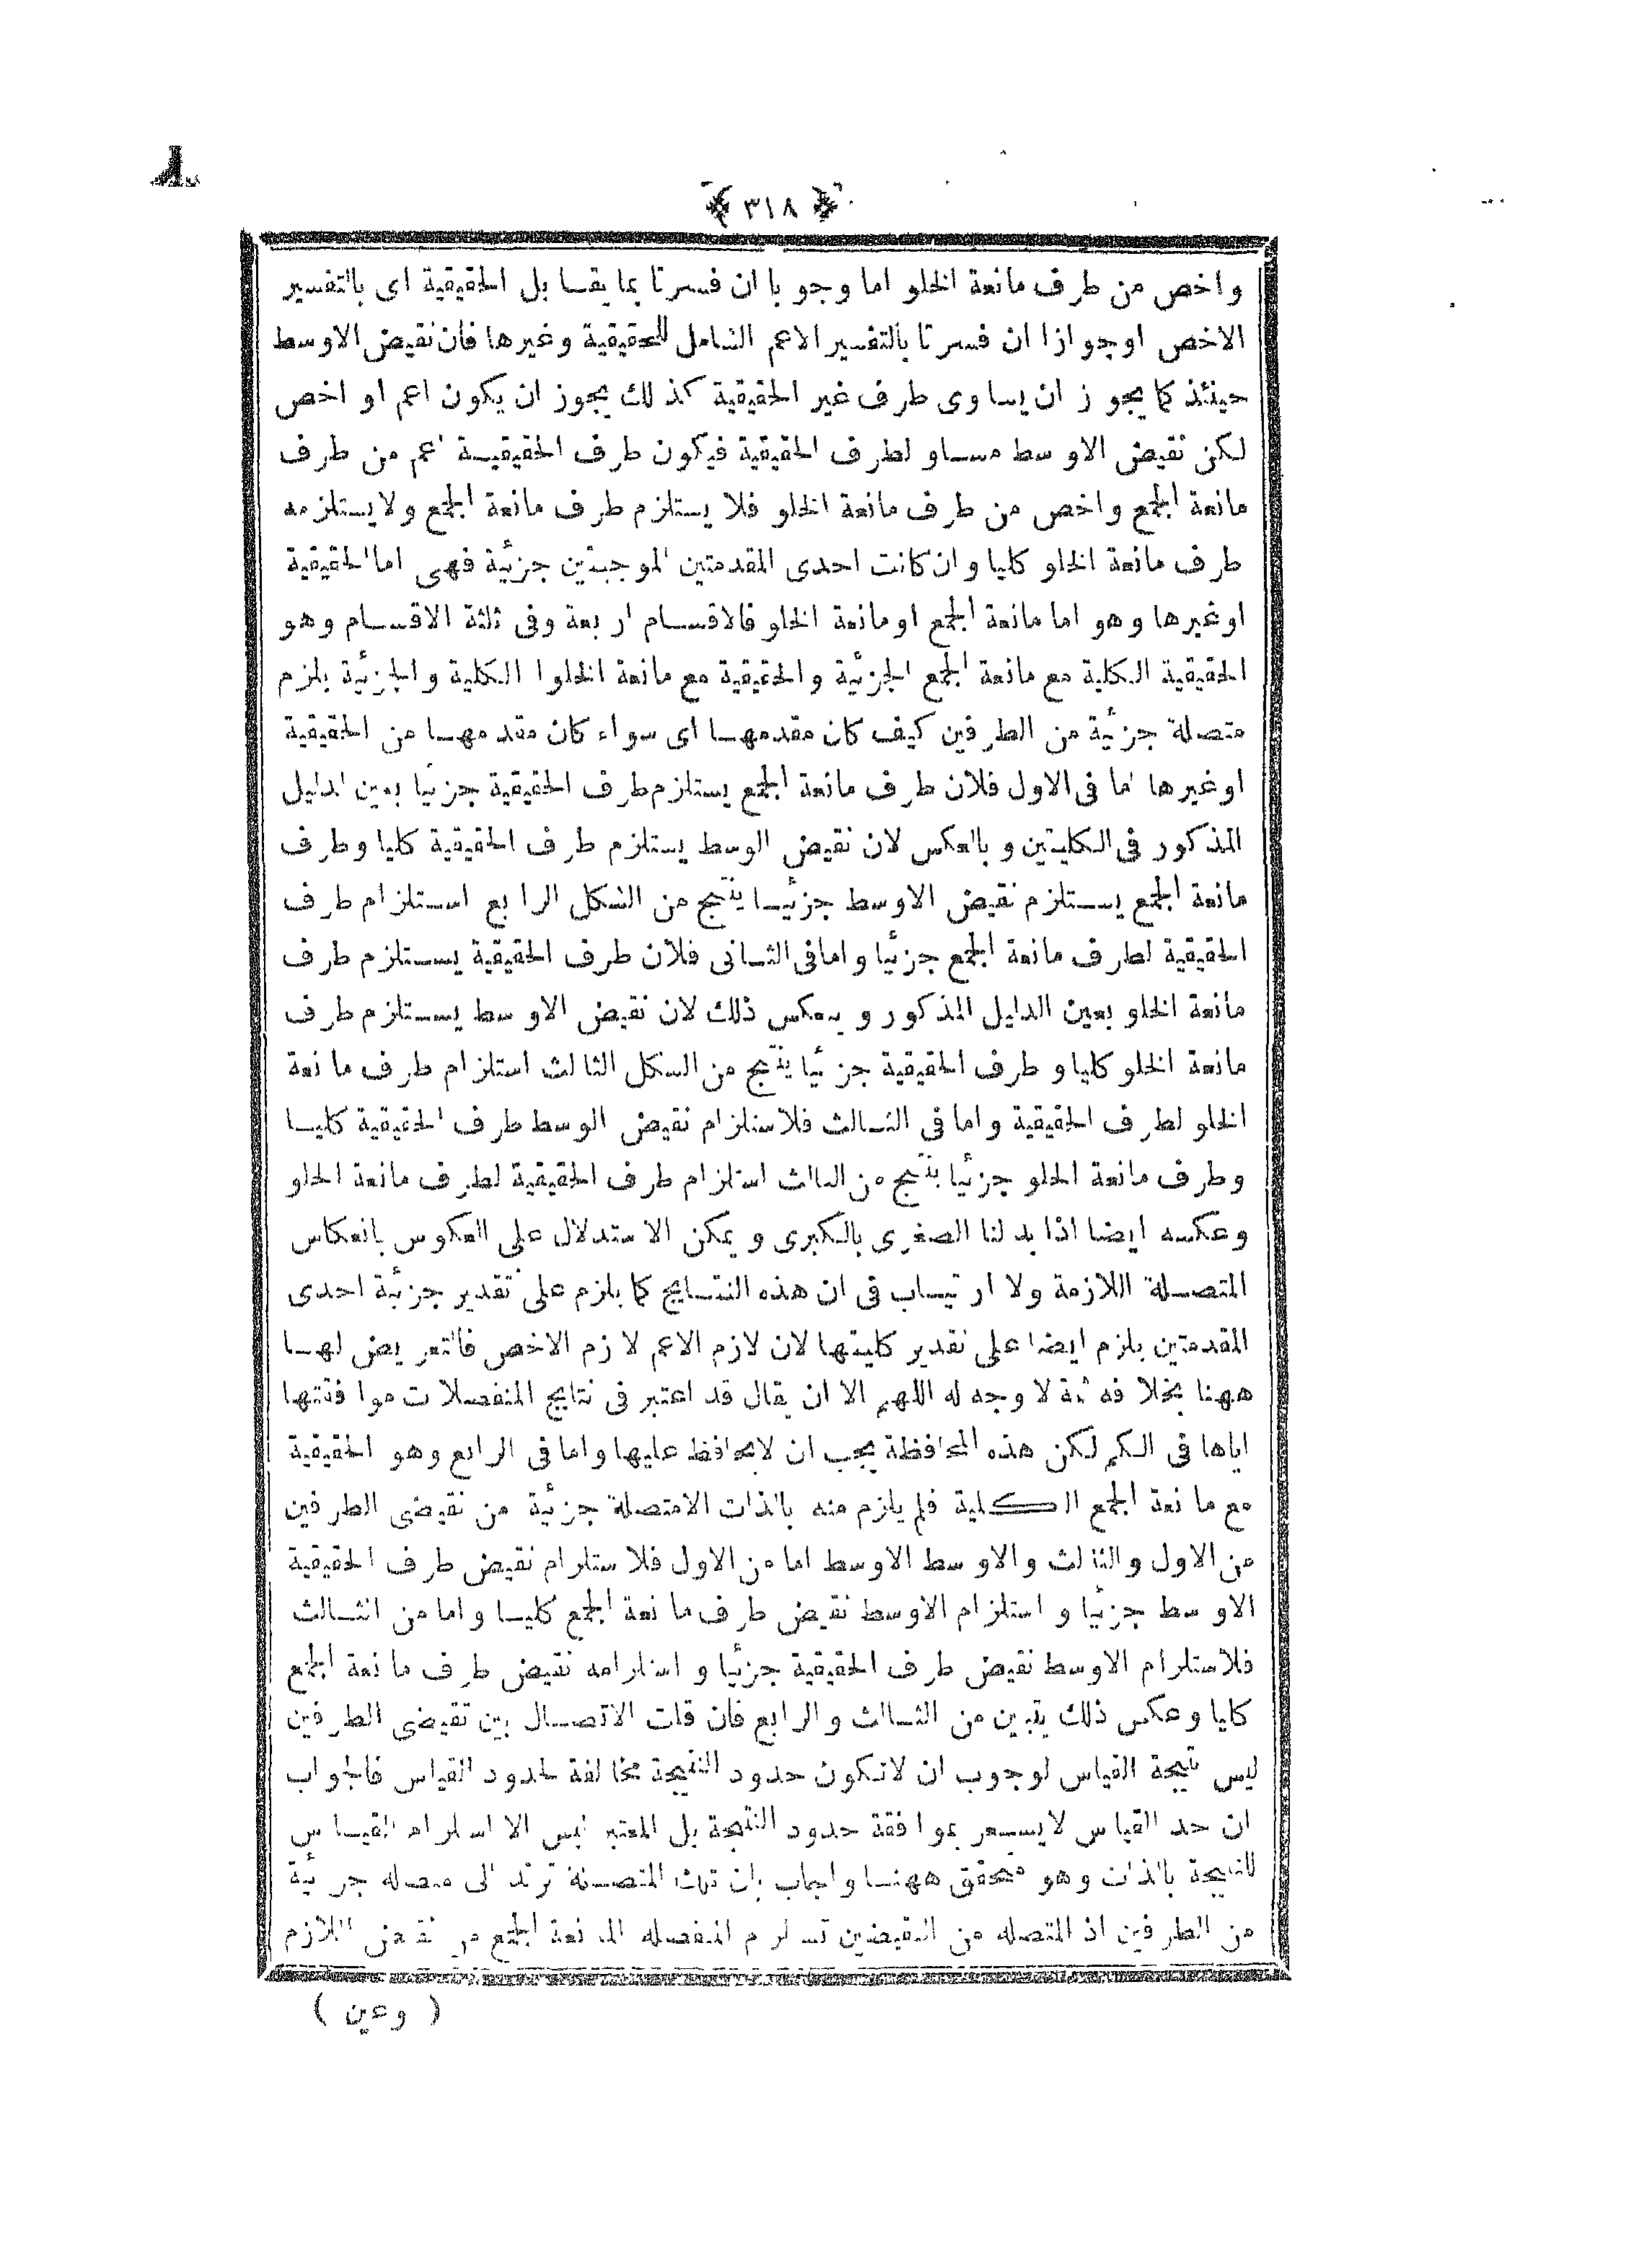 ﴿ ٣١٨ ﴾
واخص من طرف مانعة الخلو اما وجوبا ان فسرتا بما يقابل الحقيقية اى بالتفسير
الاخص او جوازا ان فسرتا بالتفسير الاعم الشامل للحقيقية وغيرها فان نقيض الاوسط
حينئذ كما يجوز ان يساوى طرف غير الحقيقية كذلك يجوز ان يكون اعم او اخص
لكن نقيض الاوسط مساو لطرف الحقيقية فيكون طرف الحقيقية اعم من طرف
مانعة الجمع واخص من طرف مانعة الخلو فلا يستلزم طرف مانعة الجمع ولا يستلزمه
طرف مانعة الخلو كليا وان كانت احدى المقدمتين الموجبتين جزئية فهى اما الحقيقية
او غيرها وهو اما مانعة الجمع او مانعة الخلو فالاقسام اربعة وفى ثلثة الاقسام وهو
الحقيقية الكلية مع مانعة الجمع الجزئية والحقيقية مع مانعة الخلوا الكلية والجزئية يلزم
متصلة جزئية من الطرفين كيف كان مقدمهما اى سواء كان مقدمهما من الحقيقية
او غيرها اما فى الاول فلان طرف مانعة الجمع يستلزم طرف الحقيقية جزئيا بعين الدليل
المذكور فى الكليتين وبالعكس لان نقيض الوسط يستلزم طرف الحقيقية كليا وطرف
مانعة الجمع يستلزم نقيض الاوسط جزئيا ينتج من الشكل الرابع استلزام طرف
الحقيقية لطرف مانعة الجمع جزئيا واما فى الثانى فلان طرف الحقيقية يستلزم طرف
مانعة الخلو بعين الدليل المذكور وبعكس ذلك لان نقيض الاوسط يستلزم طرف
مانعة الخلو كليا وطرف الحقيقية جزئيا ينتج من الشكل الثالث استلزام طرف مانعة
الخلو لطرف الحقيقية واما فى الثالث فلاستلزام نقيض الوسط طرف الحقيقية كليا
وطرف مانعة الخلو جزئيا ينتج من الثالث استلزام طرف الحقيقية لطرف مانعة الخلو
وعكسه ايضا اذا بدلنا الصغرى بالكبرى ويمكن الاستدلال على العكوس بانعكاس
المتصلة اللازمة ولا ارتياب فى ان هذه النتايج كما يلزم على تقدير جزئية احدى
المقدمتين يلزم ايضا على تقدير كليتها لان لازم الاعم لازم الاخص فالتعريض لها
ههنا بخلافه ثمة لا وجه له اللهم الا ان يقال قد اعتبر فى نتايج المنفصلات موافقتها
اياها فى الكم لكن هذه المحافظة يجب ان لايحافظ عليها واما فى الرابع وهو الحقيقية
مع مانعة الجمع الكلية فلم يلزم منه بالذات الامتصلة جزئية من نقيضى الطرفين
من الاول والثالث والاوسط الاوسط اما من الاول فلاستلزام نقيض طرف الحقيقية
الاوسط جزئيا واستلزام الاوسط نقيض طرف مانعة الجمع كليا واما من الثالث
فلاستلزام الاوسط نقيض طرف الحقيقية جزئيا واستلزامه نقيض طرف مانعة الجمع
كليا وعكس ذلك يتبين من الثالث والرابع فان قلت الاتصال بين نقيضى الطرفين
ليس نتيجة القياس لوجوب ان لاتكون حدود النتيجة مخالفة لحدود القياس فالجواب
ان حد القياس لايسعر بموافقة حدود النتيجة بل المعتبر ليس الا استلزام القياس
للنتيجة بالذات وهو متحقق ههنا واجاب بان تلك المتصلة ترتد الى متصله جزئية
من الطرفين اذ المتصله من النقيضين تستلزم المنفصله المانعة الجمع من نقيض اللازم
( وعين )